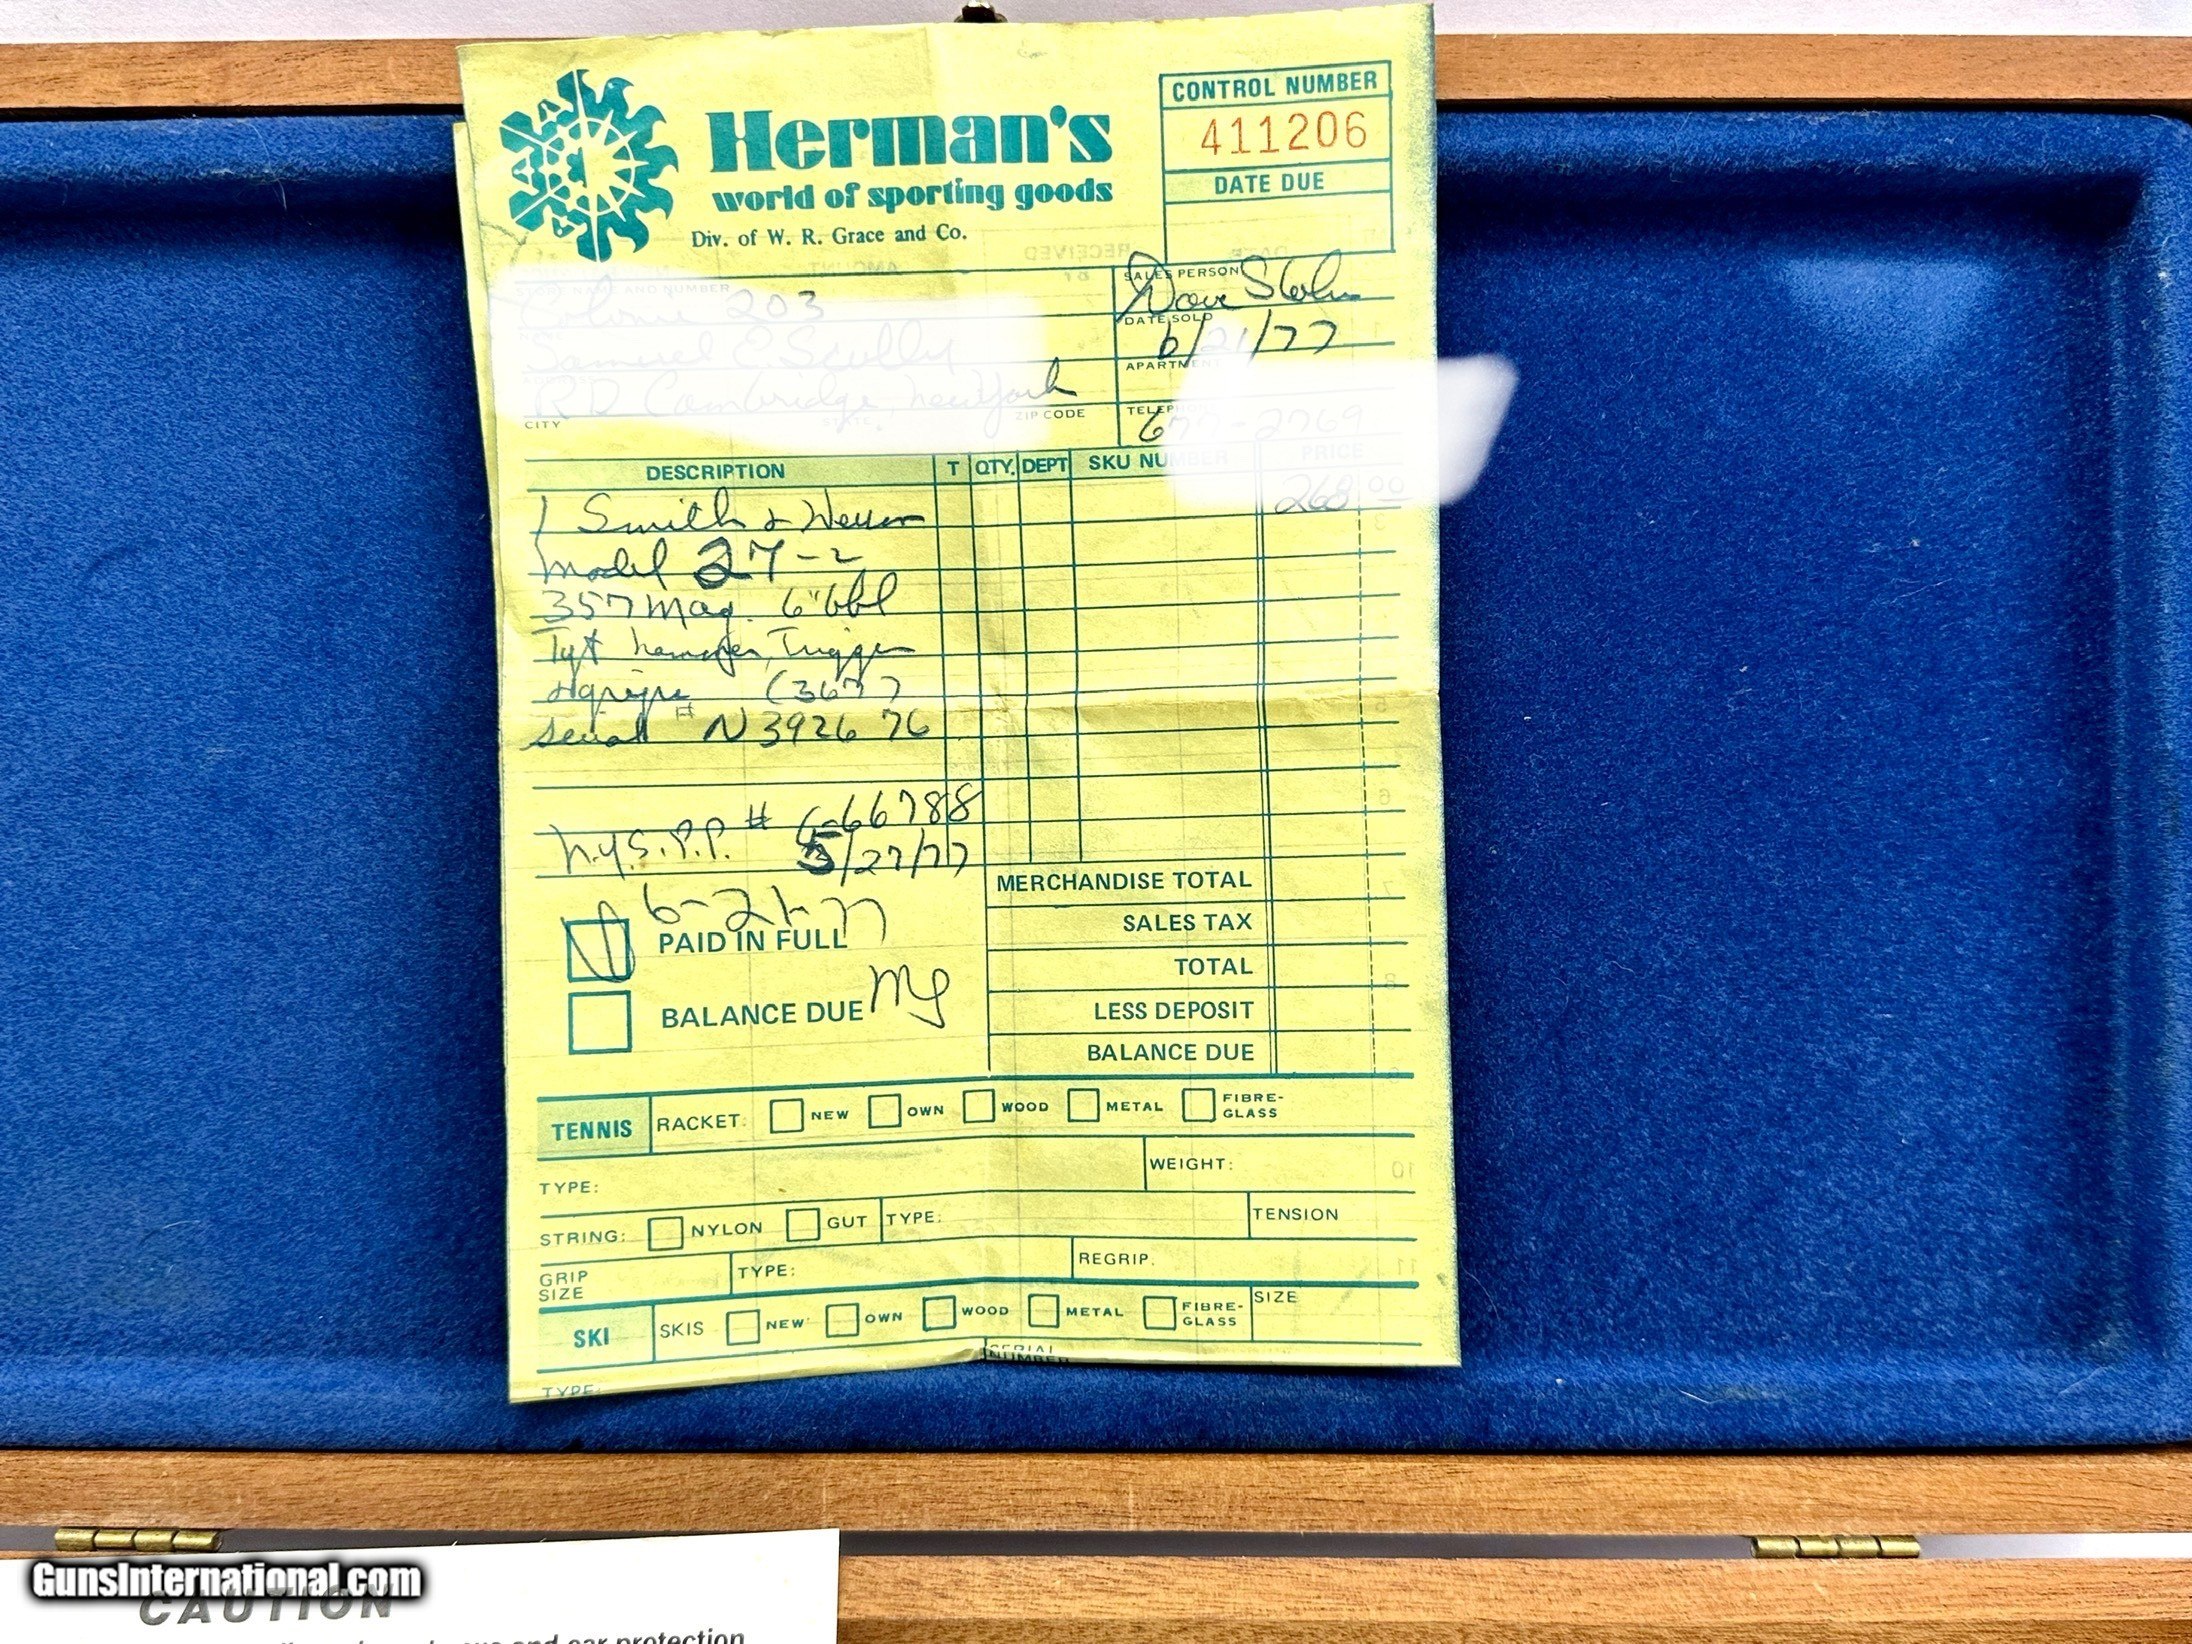 Herman's
world of sporting goods
Div. of W. R. Grace and Co.
CONTROL NUMBER
411206
DATE DUE
SALES PERSON
Dave
DATE SOLD
6/21/77
APARTMENT
CITY
ZIP CODE
DESCRIPTION T QTY. DEPT SKU NUMBER PRICE
1 Smith & Wesson 268 00
Model 27-2
357 Mag. 6" bbl
Tgt hammer, Trigger
& grips (3677)
Serial # N 3926 76
N.Y.S.P.P. # C-66788
5/27/77
6-21-77
PAID IN FULL
BALANCE DUE
MERCHANDISE TOTAL
SALES TAX
TOTAL
LESS DEPOSIT
BALANCE DUE
TENNIS RACKET: NEW OWN WOOD METAL FIBRE-GLASS
TYPE: WEIGHT:
STRING: NYLON GUT TYPE: TENSION
GRIP SIZE TYPE: REGRIP.
SKI SKIS NEW OWN WOOD METAL FIBRE-GLASS SIZE
TYPE: SERIAL NUMBER
GunsInternational.com
CAUTION
and ear protection